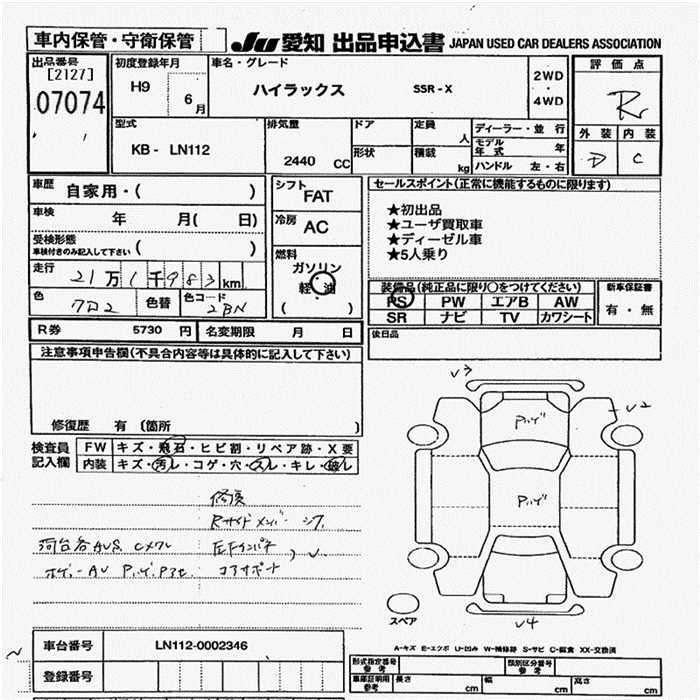 車内保管・守衛保管
JU 愛知 出品申込書 JAPAN USED CAR DEALERS ASSOCIATION
出品番号
[2127]
07074
初度登録年月
H9
6月
車名・グレード
ハイラックス SSR-X
2WD
・
4WD
評価点
R
外装 内装
D C
型式
KB- LN112
排気量
2440 CC
ドア
形状
定員 人
積載 kg
ディーラー・並行
モデル年式 年
ハンドル 左・右
車歴 自家用・( )
車検 年 月( 日)
受検形態
車検付きのみ記入して下さい ( )
走行 21万1千983km
色 色替 色コード 2BN
シフト
FAT
冷房
AC
燃料
ガソリン
軽油
セールスポイント(正常に機能するものに限ります)
★初出品
★ユーザ買取車
★ディーゼル車
★5人乗り
装備品(純正品に限り○をつけてください)
PS PW エアB AW
SR ナビ TV カワシート
新車保証書
有・無
後日品
R券 5730 円 名変期限 月 日
注意事項申告欄(不具合内容等は具体的に記入して下さい)
修復歴 有 (箇所 )
検査員記入欄
FW キズ・飛石・ヒビ割・リペア跡・X要
内装 キズ・汚レ・コゲ・穴・スレ・キレ・破レ
修復
Rサイドメンバー
コアサポート
V3
V2
V4
スペア
A-キズ E-エクボ U-凹み W-補修跡 S-サビ C-腐食 XX-交換済
車台番号 LN112-0002346
登録番号
形式指定番号
参考
類別区分番号
参考
車庫証明用
参考
長さ cm 幅 cm 高さ cm